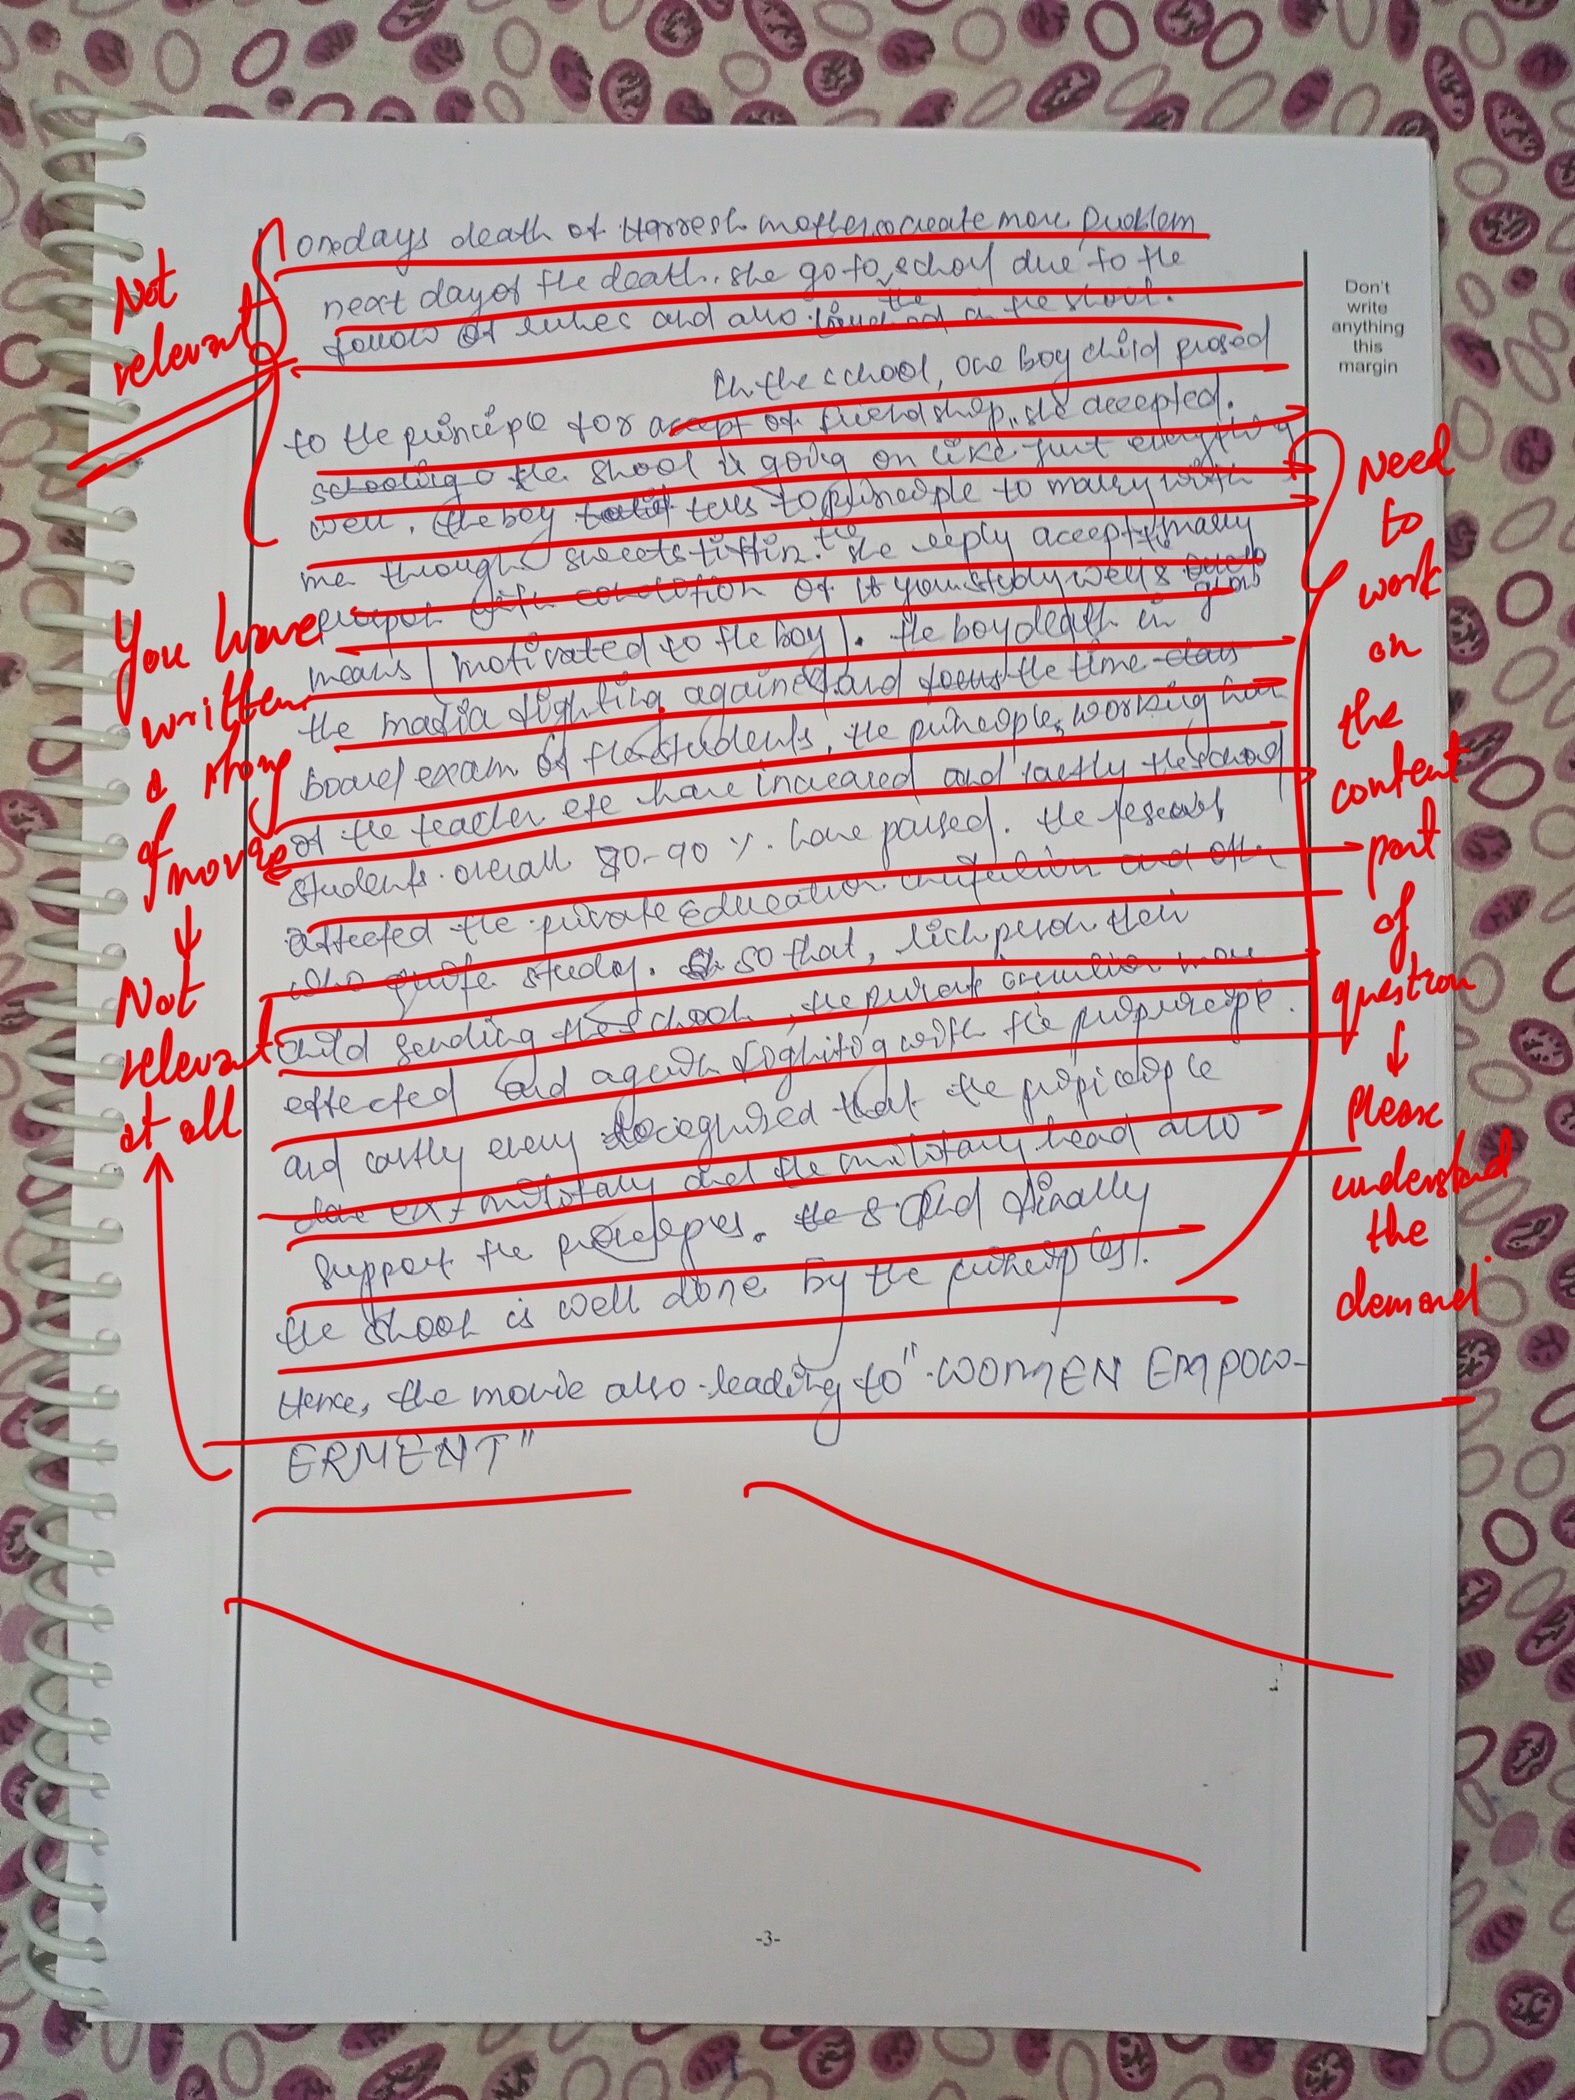 one days death of Harresh mother, create more problem
next day of the death. she go to school due to the
follow of rules and also the in the shool.
In the school, one boy child prosed
to the principle for accept of friendship, she accepted.
schooling the shool is going on like just everything
well. the boy tells to principle to marry with
me through sweets tiffin. the she reply accept the marry
with condition of if you study well &
means / motivated to the boy). the boy death in
the mafia fighting against and focus the time
board exam of the students, the principle, working hour
of the teacher etc have increased and lastly the school
students overall 80-90 %. have passed. the
affected the private education and other
who study. so that, rich person their
child sending the school, the private more
effected and fighting with the
and lastly every recognised that the
ex-military and the military head also
support the and finally
the shool is well done by the
Hence, the movie also leading to "WOMEN EMPOW-
ERMENT"
Not
relevant
You have
written
a story
of
movie
Not
relevant
at all
Don't
write
anything
this
margin
Need
to
work
on
the
content
part
of
question
please
understand
the
demand
-3-